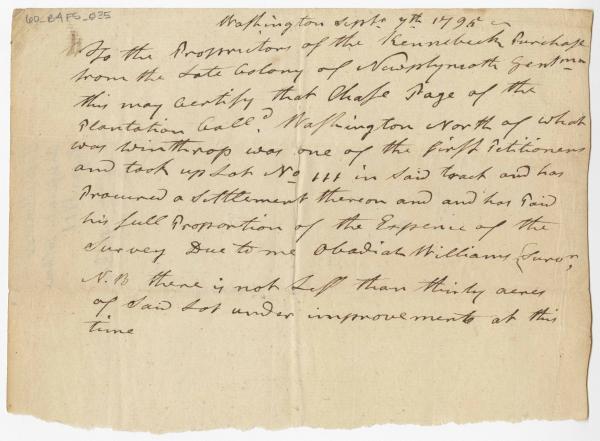 60_BAFS_035
Washington Septr 7th 1795
To the Proprietors of the Kennebeck Purchase
from the Late Colony of Newplymoth Gentmn
this may Certify that Chase Page of the
Plantation Calld. Washington North of what
was Winthrop was one of the first Petitioners
and took up Lot No 111 in Said tract and has
Procured a Settlement thereon and and has Paid
his full Proportion of the Expence of the
Survey Due to me Obadiah Williams Survr,
N.B there is not Less than thirty acres
of Said Lot under improvements at this
time